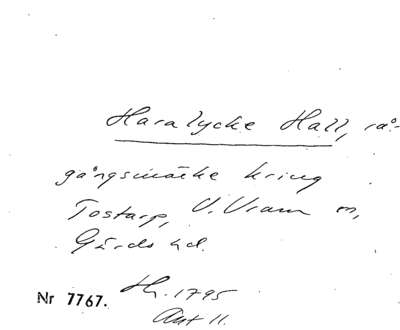 Haralycke Hall, rå-
gångsmärke kring
Tostarp, V. Vram sn,
Gärds hd.
Nr 7767. Hh. 1795
Akt 11.